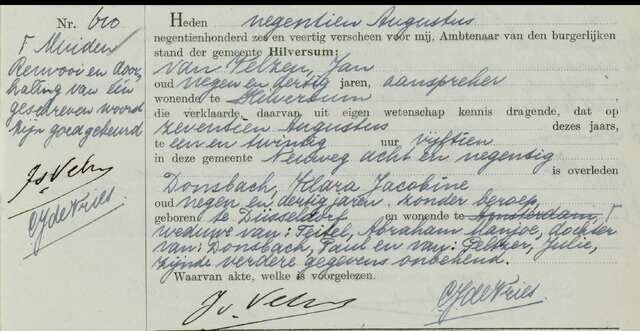 Nr. 600
Γ Muiden
Renvooi en door-
haling van een
geschreven woord
zijn goedgekeurd
Jv Velzen
CJ de Vries
Heden negentien Augustus
negentienhonderd zes en veertig verscheen voor mij, Ambtenaar van den burgerlijken
stand der gemeente Hilversum:
van Velzen, Jan
oud negen en dertig jaren, aanspreker
wonende te Hilversum
die verklaarde, daarvan uit eigen wetenschap kennis dragende, dat op
zeventien Augustus dezes jaars,
te een en twintig uur vijftien
in deze gemeente Neuweg acht en negensig
is overleden
Donsbach, Klara Jacobine
oud negen en dertig jaren, zonder beroep,
geboren te Düsseldorf en wonende te Amsterdam, Γ
weduwe van: Teitel, Abraham Manjoe, dochter
van: Donsbach, Paul en van: Pelzer, Julie,
zijnde verdere gegevens onbekend.
Waarvan akte, welke is voorgelezen.
Jv Velzen
CJ de Vries